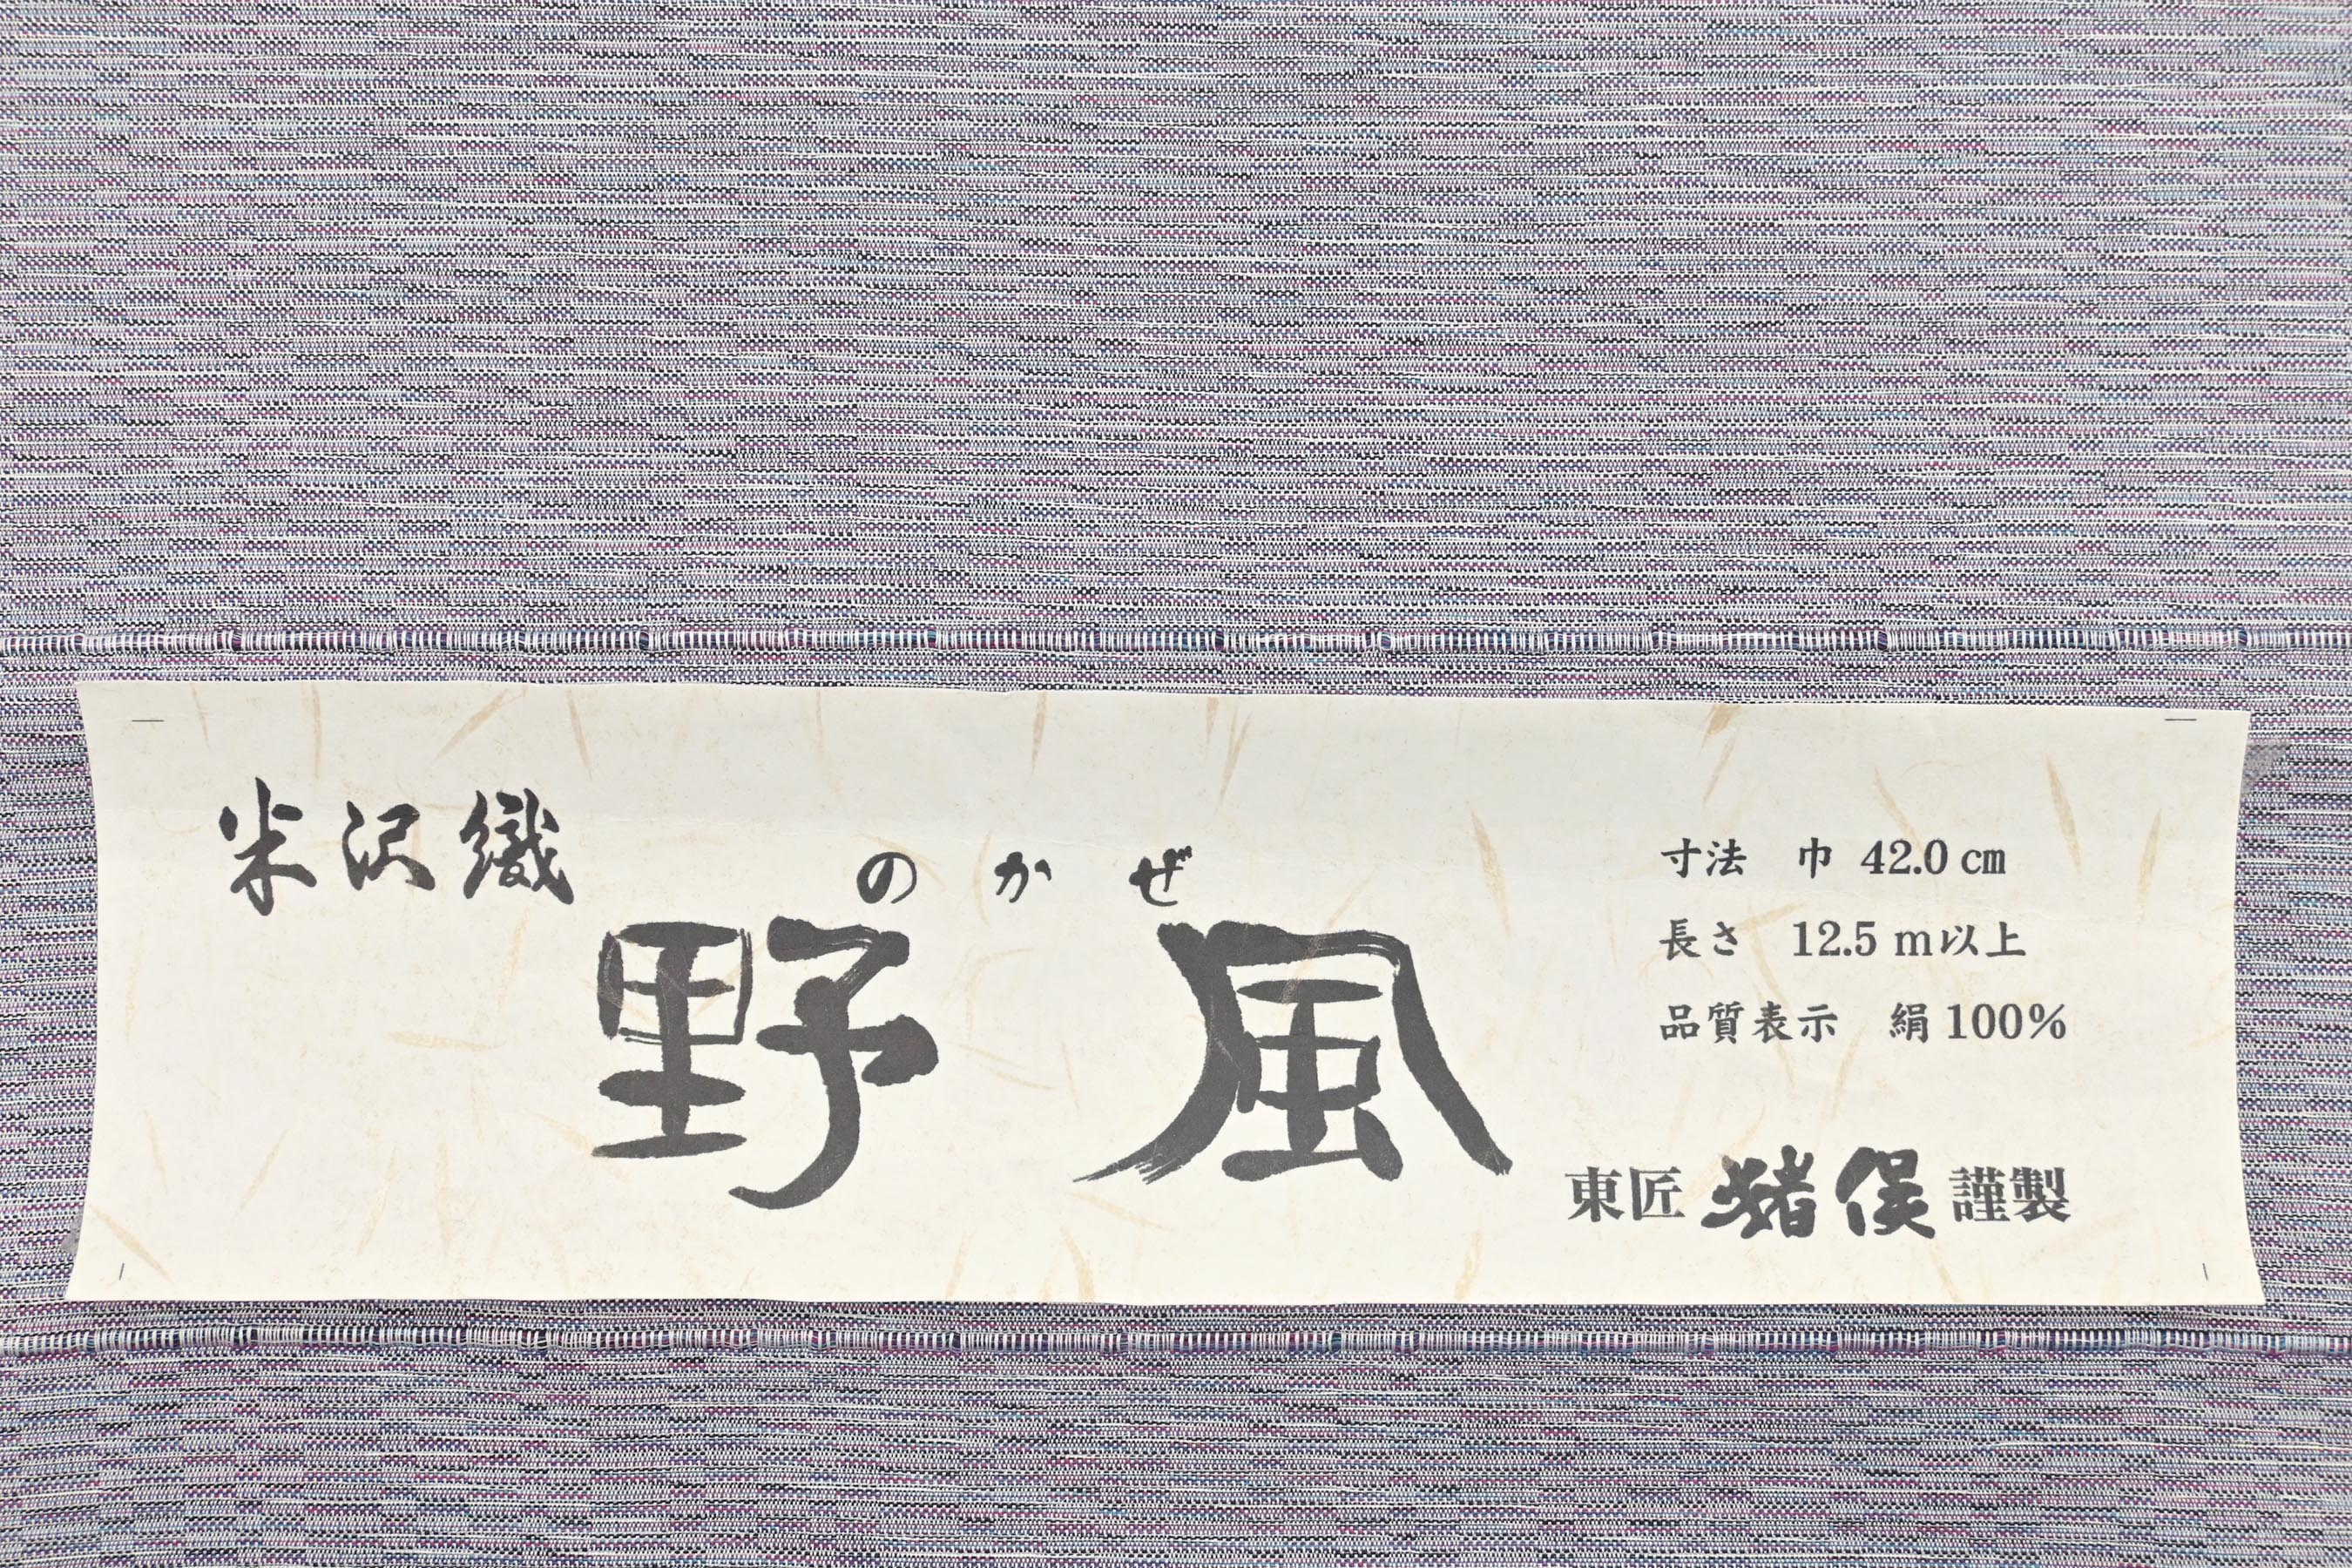 米沢織
のかぜ
野風
寸法　巾 42.0 cm
長さ　12.5 m以上
品質表示　絹 100%
東匠 猪俣 謹製